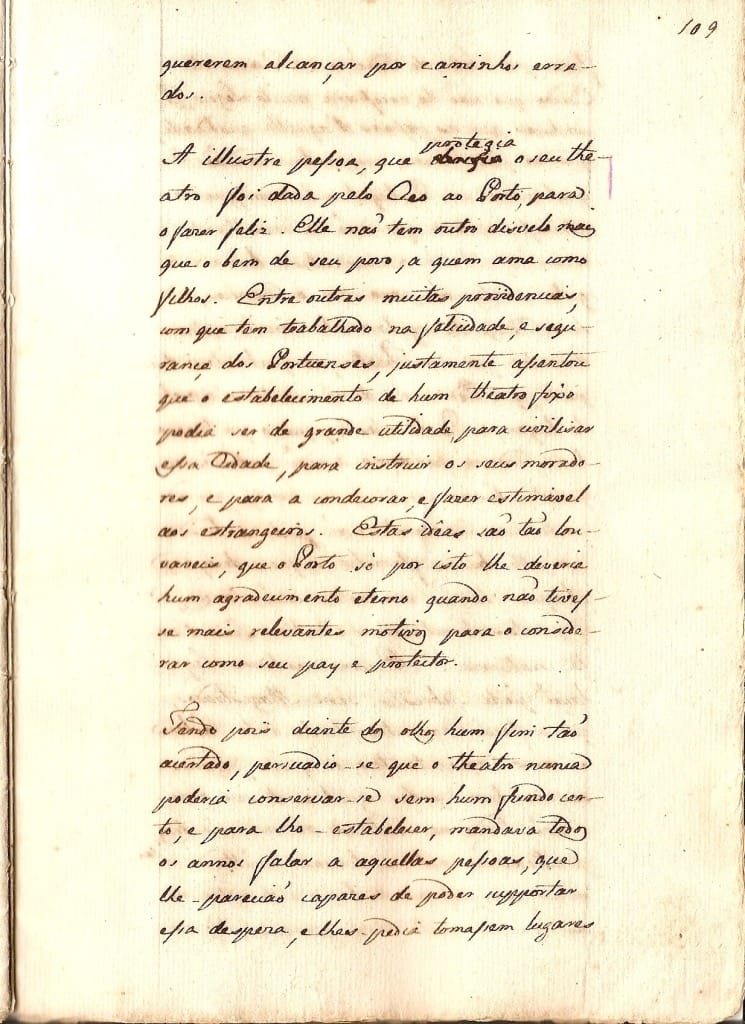 109
quererem alcançar por caminhos erra-
dos.
A illustre peſsoa, que protegia o seu the-
atro foi dada pelo Ceo ao Porto, para
o fazer feliz. Elle naõ tem outro disvelo mais
que o bem de seu povo, a quem ama como
filhos. Entre outras muitas providencias,
com que tem trabalhado na felicidade, e segu-
rança dos Portuenses, justamente aſsentou
que o estabelecimento de hum theatro fixo
podia ser de grande utilidade, para civilisar
eſsa Cidade, para instruir os seus morado-
res, e para a condecorar, e fazer estimavel
aos estrangeiros. Estas idêas saõ taõ lou-
vaveis, que o Porto só por isto lhe deveria
hum agradecimento eterno quando naõ tiveſ-
se mais relevantes motivos para o conside-
rar como seu pay e protector.
Tendo pois diante dos olhos hum fim taõ
acertado, persuadio-se que o theatro nunca
poderia conservar-se sem hum fundo cer-
to, e para lho-estabelecer, mandava todos
os annos falar a aquellas peſsoas, que
lhe-pareciaõ capazes de poder supportar
eſsa despeza, e lhes-pedia tomaſsem lugares